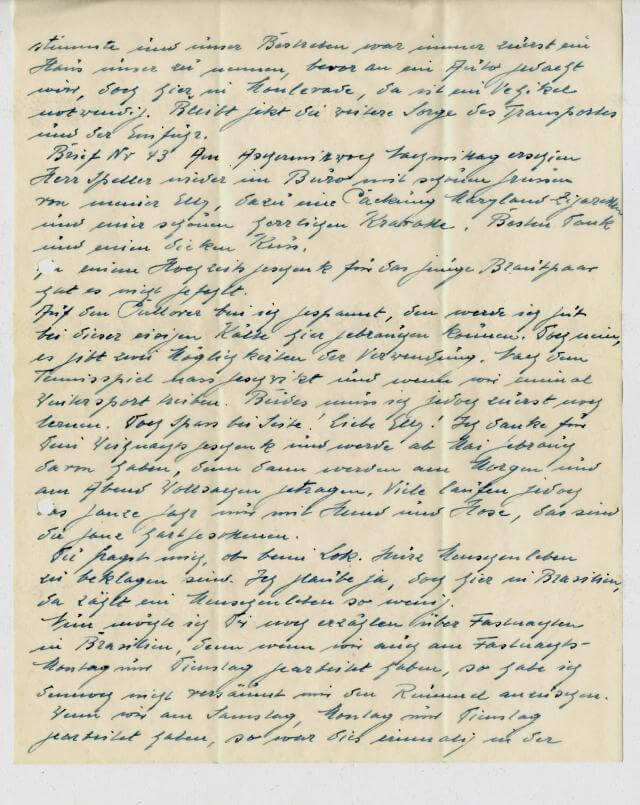 stimmte und unser Bestreben war immer zuerst ein
Haus unser zu nennen, bevor an ein Auto gedacht
wird, doch hier in Monlevade, da ist ein Vehikel
notwendig. Bleibt jetzt die weitere Sorge des Transportes
und der Einfuhr.
Brief Nr 43 Am Aschermittwoch Nachmittag erschien
Herr Speller wieder im Büro mit schönen Grüssen
von meiner Elly, dazu eine Packung Maryland-Zigaretten
und einer schönen herrlichen Kravatte. Besten Dank
und einen dicken Kuss.
An einem Hochzeitsgeschenk für das junge Brautpaar
hat es nicht gefehlt.
Auf den Pullover bin ich gespannt, den werde ich gut
bei dieser eisigen Kälte hier gebrauchen können. Doch nein,
es gibt zwei Möglichkeiten der Verwendung. Nach dem
Tennisspiel nass geschwitzt und wenn wir einmal
Wintersport treiben. Beides muss ich jedoch zuerst noch
lernen. Doch Spass bei Seite! Liebe Elly! Ich danke für
Dein Weihnachtsgeschenk und werde ab Mai Gebrauch
davon haben, denn dann werden am Morgen und
am Abend Wollsachen getragen. Viele laufen jedoch
das ganze Jahr nur mit Hemd und Hose, das sind
die ganz Hartgesottenen.
Du fragst mich, ob beim Lok. Menschenleben
zu beklagen sind. Ich glaube ja, doch hier in Brasilien,
da zählt ein Menschenleben so wenig.
Nun möchte ich Dir noch erzählen über Fastnachten
in Brasilien, denn wenn wir auch am Fastnachts-
Montag und Dienstag gearbeitet haben, so habe ich
dennoch nicht versäumt mir den Rummel anzusehen.
Wenn wir am Samstag, Montag und Dienstag
gearbeitet haben, so war dies einmalig in der